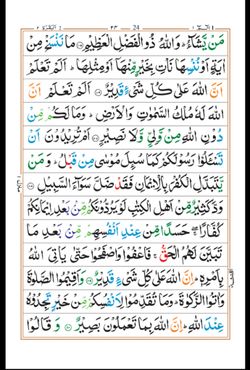 مَنْ يَّشَآءُ ؕ وَاللّٰهُ ذُو الْفَضْلِ الْعَظِيْمِ ۝ مَا نَنْسَخْ مِنْ
اٰيَةٍ اَوْ نُنْسِهَا نَاْتِ بِخَيْرٍ مِّنْهَاۤ اَوْ مِثْلِهَا ؕ اَلَمْ تَعْلَمْ
اَنَّ اللّٰهَ عَلٰى كُلِّ شَىْءٍ قَدِيْرٌ ۝ اَلَمْ تَعْلَمْ اَنَّ
اللّٰهَ لَهٗ مُلْكُ السَّمٰوٰتِ وَالْاَرْضِ ؕ وَمَا لَكُمْ مِّنْ
دُوْنِ اللّٰهِ مِنْ وَّلِىٍّ وَّلَا نَصِيْرٍ ۝ اَمْ تُرِيْدُوْنَ اَنْ
تَسْـَٔلُوْا رَسُوْلَكُمْ كَمَا سُئِلَ مُوْسٰى مِنْ قَبْلُ ؕ وَمَنْ
يَّتَبَدَّلِ الْكُفْرَ بِالْاِيْمَانِ فَقَدْ ضَلَّ سَوَآءَ السَّبِيْلِ ۝
وَدَّ كَثِيْرٌ مِّنْ اَهْلِ الْكِتٰبِ لَوْ يَرُدُّوْنَكُمْ مِّنْۢ بَعْدِ اِيْمَانِكُمْ
كُفَّارًا ۖۚ حَسَدًا مِّنْ عِنْدِ اَنْفُسِهِمْ مِّنْۢ بَعْدِ مَا
تَبَيَّنَ لَهُمُ الْحَقُّ ۚ فَاعْفُوْا وَاصْفَحُوْا حَتّٰى يَاْتِىَ اللّٰهُ
بِاَمْرِهٖ ؕ اِنَّ اللّٰهَ عَلٰى كُلِّ شَىْءٍ قَدِيْرٌ ۝ وَاَقِيْمُوا الصَّلٰوةَ
وَاٰتُوا الزَّكٰوةَ ؕ وَمَا تُقَدِّمُوْا لِاَنْفُسِكُمْ مِّنْ خَيْرٍ تَجِدُوْهُ
عِنْدَ اللّٰهِ ؕ اِنَّ اللّٰهَ بِمَا تَعْمَلُوْنَ بَصِيْرٌ ۝ وَقَالُوْا